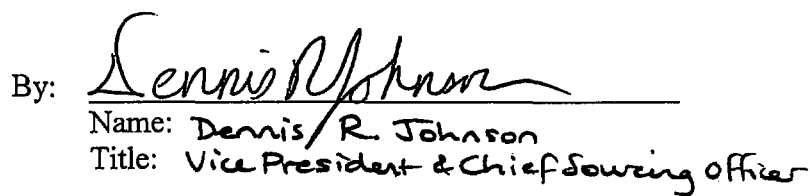 By: Dennis R Johnson
Name: Dennis R. Johnson
Title: Vice President & Chief Sourcing Officer